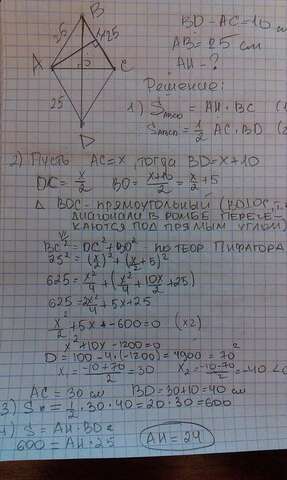 B
BD - AC = 10 см
25
H
25
AB = 25 см
A
O
C
AH - ?
25
Решение:
D
1) S = AH · BC (1
S = 1/2 AC · BD (2
2) Пусть AC = x, тогда BD = x + 10
OC = x/2 BO = (x+10)/2 = x/2 + 5
Δ BOC - прямоугольный (BO⊥OC, т.к
диагонали в ромбе пересе-
каются под прямым углом)
BC² = OC² + BO² по теор Пифагора
25² = (x/2)² + (x/2 + 5)²
625 = x²/4 + (x²/4 + 10x/2 + 25)
625 = 2x²/4 + 5x + 25
x²/2 + 5x - 600 = 0 (x2)
x² + 10x - 1200 = 0
D = 100 - 4 · (-1200) = 4900 = 70²
x₁ = (-10+70)/2 = 30 x₂ = (-10-70)/2 = -40 <0
AC = 30 см BD = 30 + 10 = 40 см
3) S = 1/2 · 30 · 40 = 20 · 30 = 600
4) S = AH · BC
600 = AH · 25
AH = 24